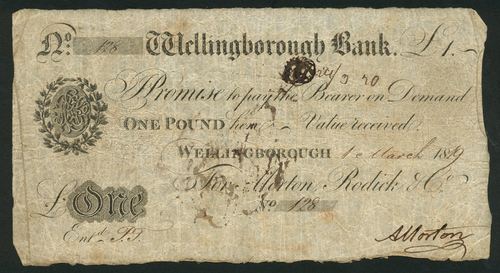 No. 128 Wellingborough Bank. £1.
I Promise to pay the Bearer on Demand
ONE POUND here Value received.
WELLINGBOROUGH 1 March 1819
For Morton Rodick & Co.
£ One No. 128
Entd.
AMorton